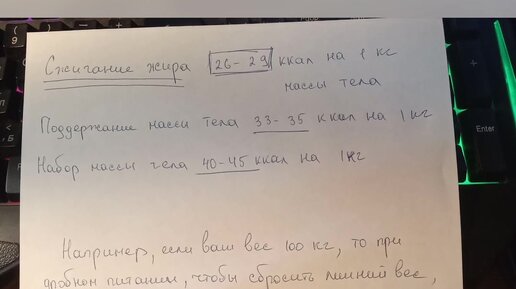 Сжигание жира 26-29 ккал на 1 кг
массы тела
Поддержание массы тела 33-35 ккал на 1 кг
Набор массы тела 40-45 ккал на 1кг
Например, если ваш вес 100 кг, то при
дробном питании, чтобы сбросить лишний вес,
Enter